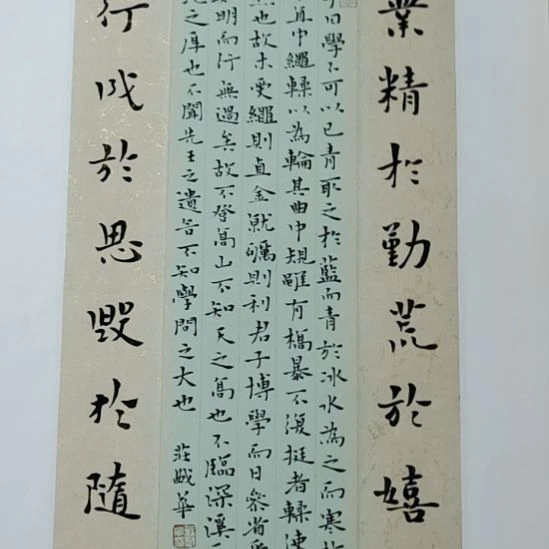 業精於勤荒於嬉
曰學不可以已青取之於藍而青於冰水為之而寒於
直中繩輮以為輪其曲中規雖有槁暴不復挺者輮使
然也故木受繩則直金就礪則利君子博學而日參省乎
明而行無過矣故不登高山不知天之高也不臨深溪
地之厚也不聞先王之遺言不知學問之大也
莊 華
行成於思毀於隨